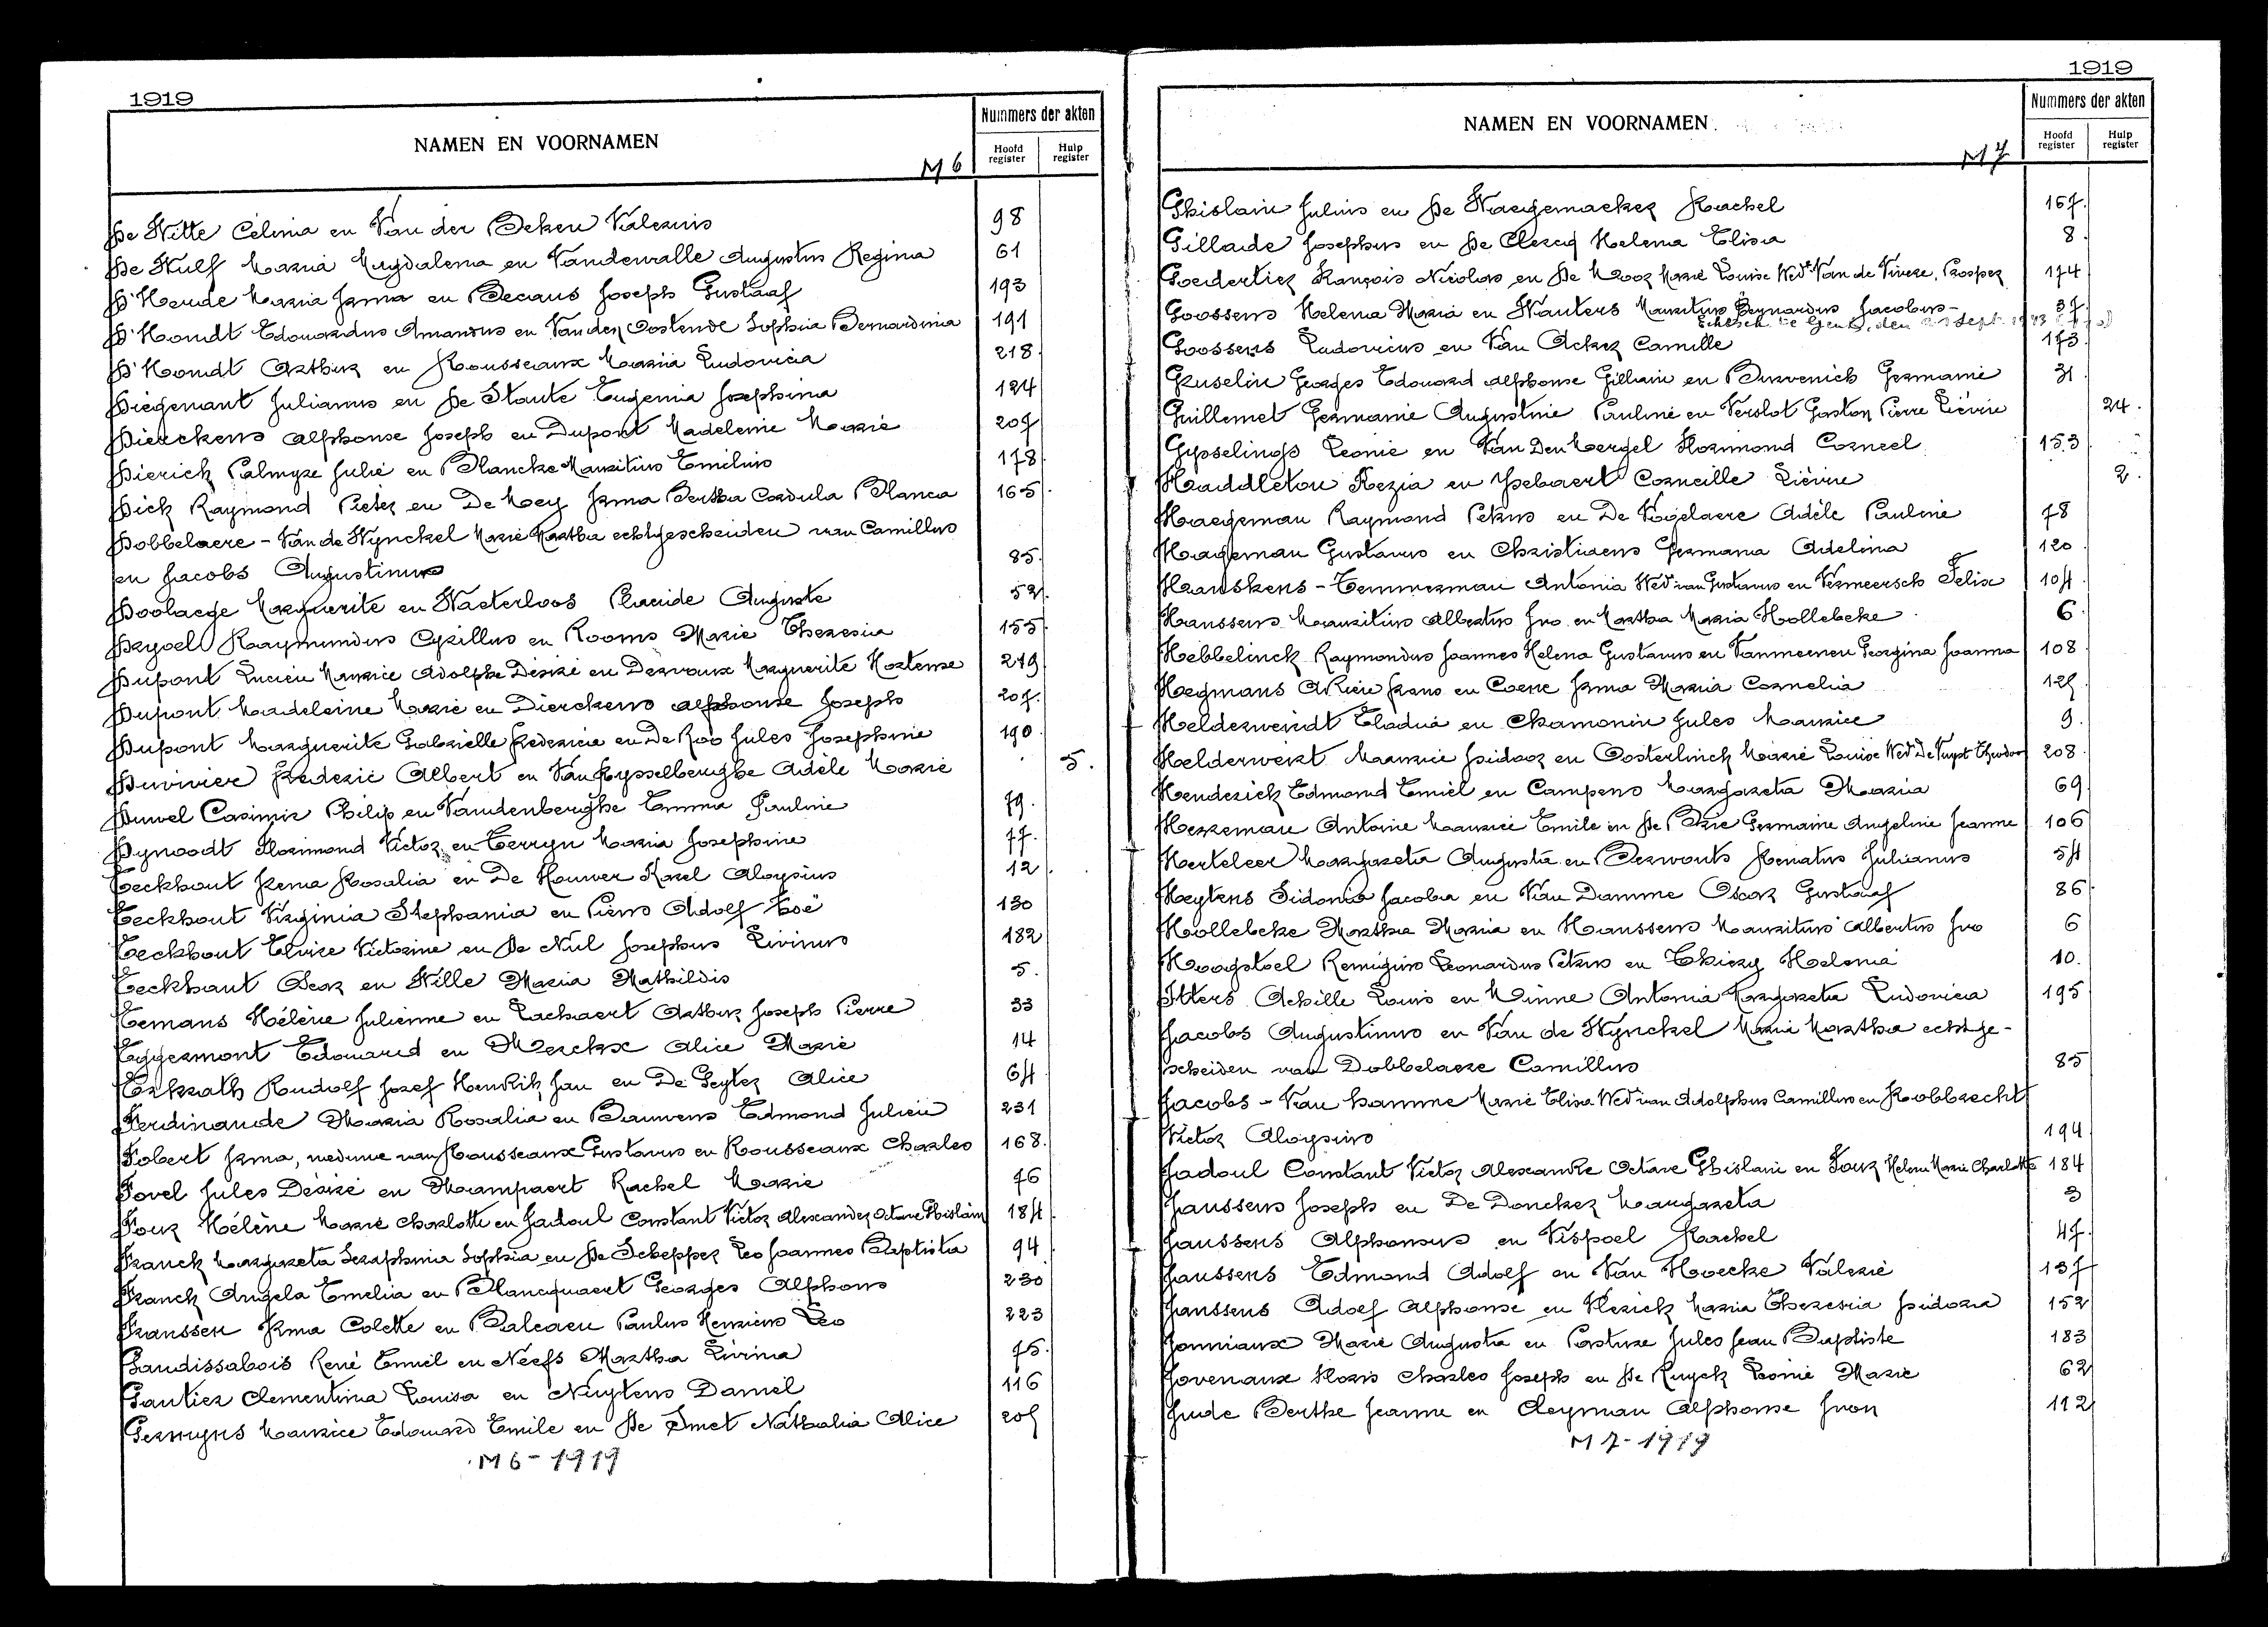 1919
NAMEN EN VOORNAMEN
Nummers der akten
Hoofd register
Hulp register
M 6
De Witte Célina en Van der Beken Valerius 98
De Wulf Maria Magdalena en Vandewalle Augustus Regina 61
D'Heude Maria Irma en Becaus Joseph Gustaaf 193
D'Hondt Edouardus Amandus en Vanden Oostende Sophia Bernardina 191
D'Hondt Arthur en Rousseaux Maria Ludovica 218
Diegenant Julianus en De Staute Eugenia Josephina 124
Dierckens Alphonse Joseph en Dupont Madeleine Marie 207
Dierick Palmyre Julie en Blancke Mauritius Emilius 178
Dick Raymond Pieter en De Mey Irma Bertha Cordula Blanca 165
Dobbelaere - Van de Wynckel Marie Martha echtgescheiden van Camillus
en Jacobs Augustinus 85
Doolaege Marguerite en Waeterloos Placide Auguste 52
Dryoel Raymundus Cyrillus en Rooms Marie Theresia 155
Dupont Lucien Maurice Adolphe Désiré en Dervoux Marguerite Hortense 219
Dupont Madeleine Marie en Dierckens Alphonse Joseph 207
Dupont Marguerite Gabrielle Fredericie en De Roo Jules Josephine 190
Duvivier Frederic Albert en Van Rysselberghe Adèle Marie 5.
Duwel Casimir Philip en Vandenberghe Emma Pauline 79
Dynoodt Florimond Victor en Terryn Maria Josephine 77
Eeckhout Irena Rosalia en De Houwer Karel Aloysius 12
Eeckhout Virginia Stephania en Piens Adolf Zoë 130
Eeckhout Elvire Victorine en De Nul Josephus Livinus 182
Eeckhaut Oscar en Wille Maria Mathildis 5.
Eemans Hélène Julienne en Lachaert Arthur Joseph Pierre 33
Eggermont Edouard en Merckx Alice Marie 14
Erkrath Rudolf Jozef Henrik Jan en De Geyter Alice 64
Ferdinande Maria Rosalia en Bauwens Edmond Julien 231
Fobert Irma, weduwe van Rousseaux Gustavus en Rousseaux Charles 168
Fovel Jules Désiré en Mampaert Rachel Marie 76
Four Hélène Marie Charlotte en Jadoul Constant Victor Alexander Octave Ghislain 184
Franck Margareta Seraphinia Sophia en De Schepper Leo Joannes Baptista 94
Franck Angela Emelia en Blancquaert Georges Alphons 230
Franssen Irma Colette en Balcaen Paulus Henricus Leo 223
Gaudissabois René Emiel en Neefs Martha Livina 75
Gautier Clementina Louisa en Nuytens Daniël 116
Gernuyns Maurice Edouard Emile en De Smet Nathalia Alice 205
M 6 - 1919
1919
NAMEN EN VOORNAMEN
Nummers der akten
Hoofd register
Hulp register
M 7
Ghislain Julius en De Waegemaeker Rachel 167
Gillarde Josephus en De Clercq Helena Elisa 8
Goedertier François Nicolas en De Moor Marie Louise Wed. Van de Vivere, Prosper 174
Goossens Helena Maria en Wauters Mauritius Bernardus Jacobus - 37
Echtsch. te Gent, den sept. 1943
Goossens Ludovicus en Van Acker Camille 173
Gruselin Georges Edouard Alphonse Gillain en Burvenich Germanie 31
Guillemet Germanie Augustine Pauline en Verslot Gaston Pierre Liévin 24
Gysselings Leonie en Van Den Mergel Florimond Corneel 153
Haddleton Kezia en Ysebaert Corneille Liévin 2
Haegeman Raymond Petrus en De Vogelaere Adèle Pauline 78
Hageman Gustavus en Christiaens Germana Adelina 120
Hanskens - Temmerman Antonia Wed. van Gustavus en Vermeersch Felix 104
Hanssens Mauritius Albertus Ivo en Martha Maria Hollebeke 6
Hebbelinck Raymondus Joannes Helena Gustavus en Vanmeenen Georgina Joanna 108
Hegmans Adrien Frans en Coene Irma Maria Cornelia 125
Helderweirdt Eladia en Chamonin Jules Maurice 9
Helderweirt Maurice Isidoor en Oosterlinck Marie Louise Wed. De Kuyst Theodoor 208
Henderick Edmond Emiel en Campens Margareta Maria 69
Herreman Antoine Maurice Emile en De Brie Germaine Angeline Jeanne 106
Herteleer Margareta Augusta en Derwouts Renatus Julianus 54
Heytens Sidonia Jacoba en Van Damme Oscar Gustaaf 86
Hollebeke Martha Maria en Hanssens Mauritius Albertus Ivo 6
Hoogstoel Remigius Leonardus Petrus en Thiery Helena 10
Itters Achille Louis en Minne Antonia Margareta Ludovica 195
Jacobs Augustinus en Van de Wynckel Marie Martha echtge-
scheiden van Dobbelaere Camillus 85
Jacobs - Van Hamme Marie Elisa Wed. van Adolphus Camillus en Robbrecht
Victor Aloysius 194
Jadoul Constant Victor Alexandre Octave Ghislain en Four Helene Marie Charlotte 184
Janssens Joseph en De Doncker Margareta 3
Janssens Alphonsus en Vispoel Rachel 47
Janssens Edmond Adolf en Van Hoecke Valerie 137
Janssens Adolf Alphonse en Flerick Maria Theresia Isidora 152
Jonniaux Marie Augusta en Pasture Jules Jean Baptiste 183
Jovenaux Floris Charles Joseph en De Ruyck Leonie Marie 62
Jude Berthe Jeanne en Cleyman Alphonse Ivon 112
M 7 - 1919